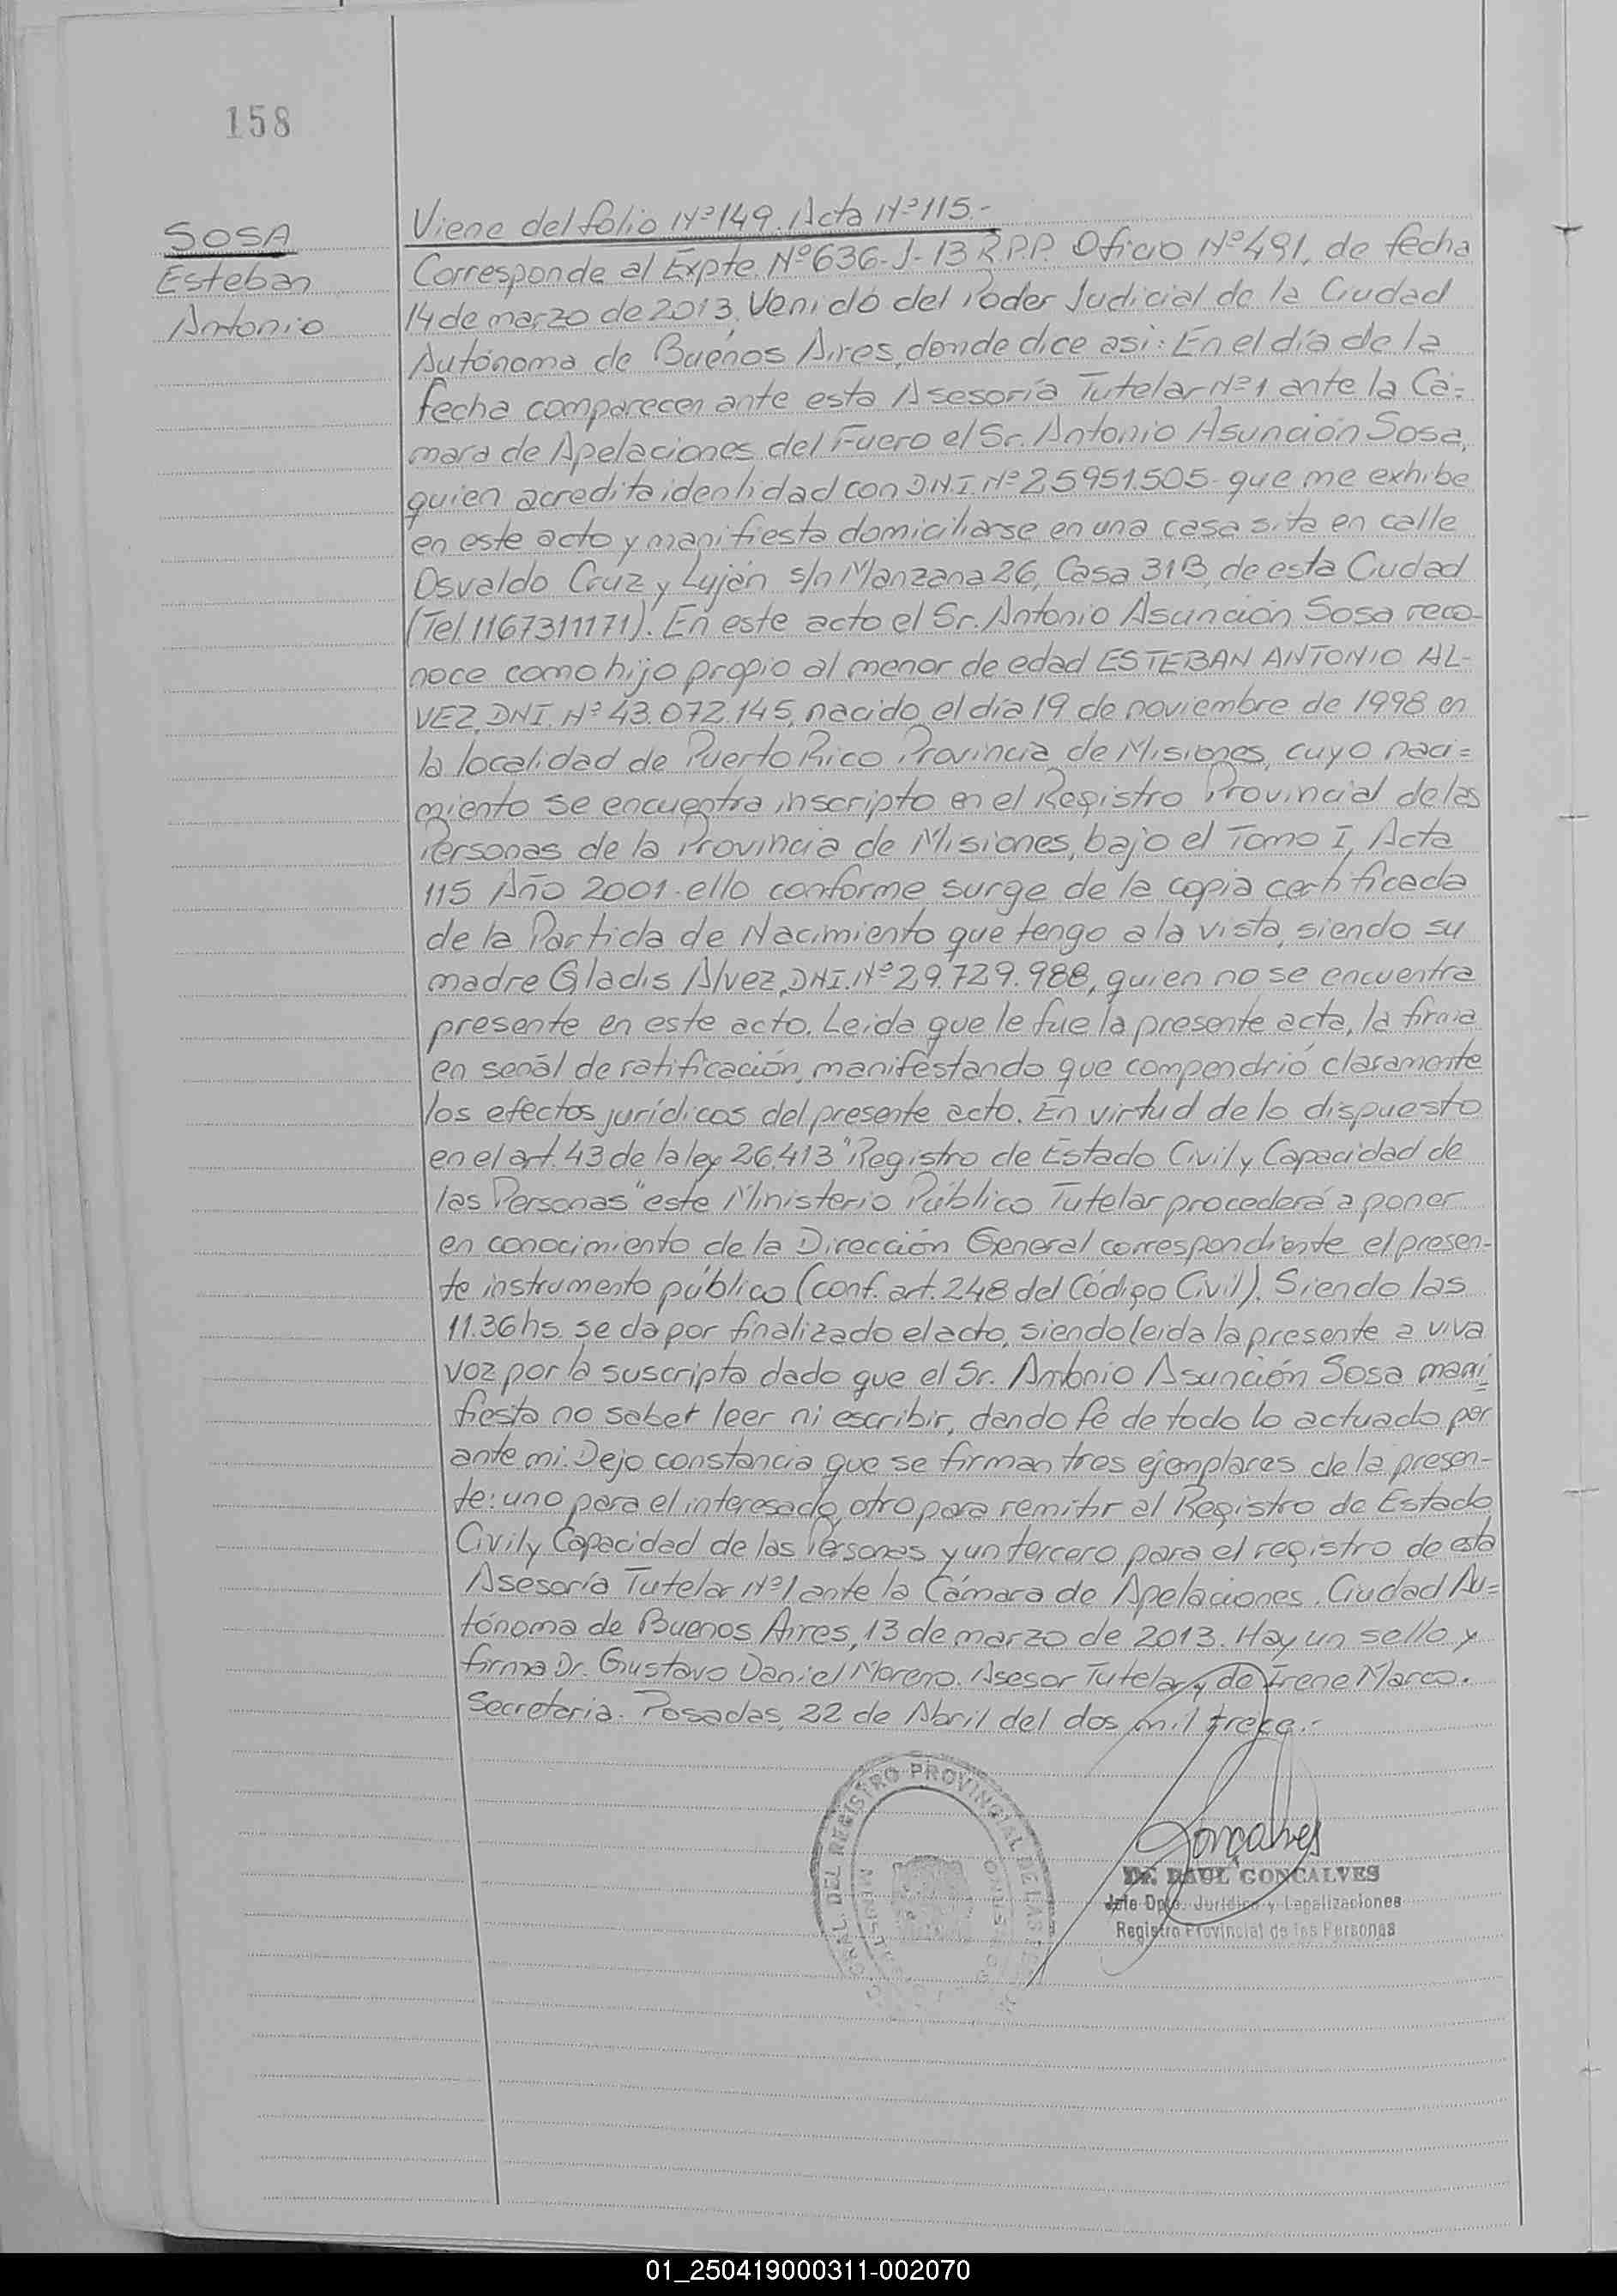 158
SOSA
Esteban
Antonio
Viene del folio Nº 149. Acta Nº 115.-
Corresponde al Expte. Nº 636-J-13 R.P.P. Oficio Nº 491, de fecha
14 de marzo de 2013, Venido del Poder Judicial de la Ciudad
Autónoma de Buenos Aires, donde dice asi: En el día de la
fecha comparecen ante esta Asesoría Tutelar Nº 1 ante la Cá=
mara de Apelaciones del Fuero el Sr. Antonio Asunción Sosa,
quien acredita identidad con DN.I. Nº 25951.505- que me exhibe
en este acto y manifiesta domiciliarse en una casa sita en calle
Osvaldo Cruz y Luján s/n Manzana 26, Casa 31B, de esta Ciudad
(Tel. 1167311171). En este acto el Sr. Antonio Asunción Sosa reco-
noce como hijo propio al menor de edad ESTEBAN ANTONIO AL-
VEZ, DNI. Nº 43.072.145, nacido el día 19 de noviembre de 1998 en
la localidad de Puerto Rico Provincia de Misiones, cuyo naci=
miento se encuentra inscripto en el Registro Provincial de las
Personas de la Provincia de Misiones, bajo el Tomo I, Acta
115 Año 2001- ello conforme surge de la copia certificada
de la Partida de Nacimiento que tengo a la vista, siendo su
madre Gladis Alvez, DNI. Nº 29.729.988, quien no se encuentra
presente en este acto. Leida que le fue la presente acta, la firma
en señal de ratificación, manifestando que compendrió claramente
los efectos jurídicos del presente acto. En virtud de lo dispuesto
en el art. 43 de la ley 26.413 "Registro de Estado Civil y Capacidad de
las Personas" este Ministerio Público Tutelar procederá a poner
en conocimiento de la Dirección General correspondiente el presen-
te instrumento público (conf. art. 248 del Código Civil). Siendo las
11.36 hs. se da por finalizado el acto, siendo leida la presente a viva
voz por la suscripta dado que el Sr. Antonio Asunción Sosa mani=
fiesta no saber leer ni escribir, dando fe de todo lo actuado por
ante mi. Dejo constancia que se firman tres ejemplares de la presen-
te: uno para el interesado, otro para remitir al Registro de Estado
Civil y Capacidad de las Personas y un tercero para el registro de esta
Asesoría Tutelar Nº 1 ante la Cámara de Apelaciones. Ciudad Au=
tónoma de Buenos Aires, 13 de marzo de 2013. Hay un sello y
firma Dr. Gustavo Daniel Moreno. Asesor Tutelar y de Irene Marco.
Secretaria. Posadas, 22 de Abril del dos mil trece.-
DEL REGISTRO PROVINCIAL DE LAS
MISIONES
Goncalves
Dr. RAUL GONCALVES
Jefe Dpto. Jurídico y Legalizaciones
Registro Provincial de las Personas
01_250419000311-002070